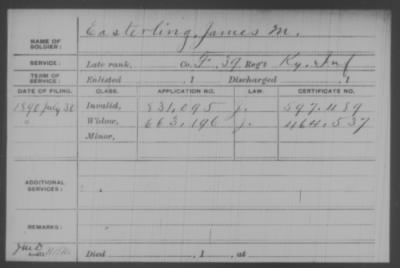 Easterling, James M.
NAME OF SOLDIER:
SERVICE: Late rank, Co. F, 39 Reg't Ky. Inf
TERM OF SERVICE: Enlisted , 1 Discharged , 1
DATE OF FILING. CLASS. APPLICATION NO. LAW. CERTIFICATE NO.
1890 July 30 Invalid, 831,095 j. 597.489
" Widow, 663.190 j. 464.537
Minor,
ADDITIONAL SERVICES:
REMARKS:
Died , 1 , at